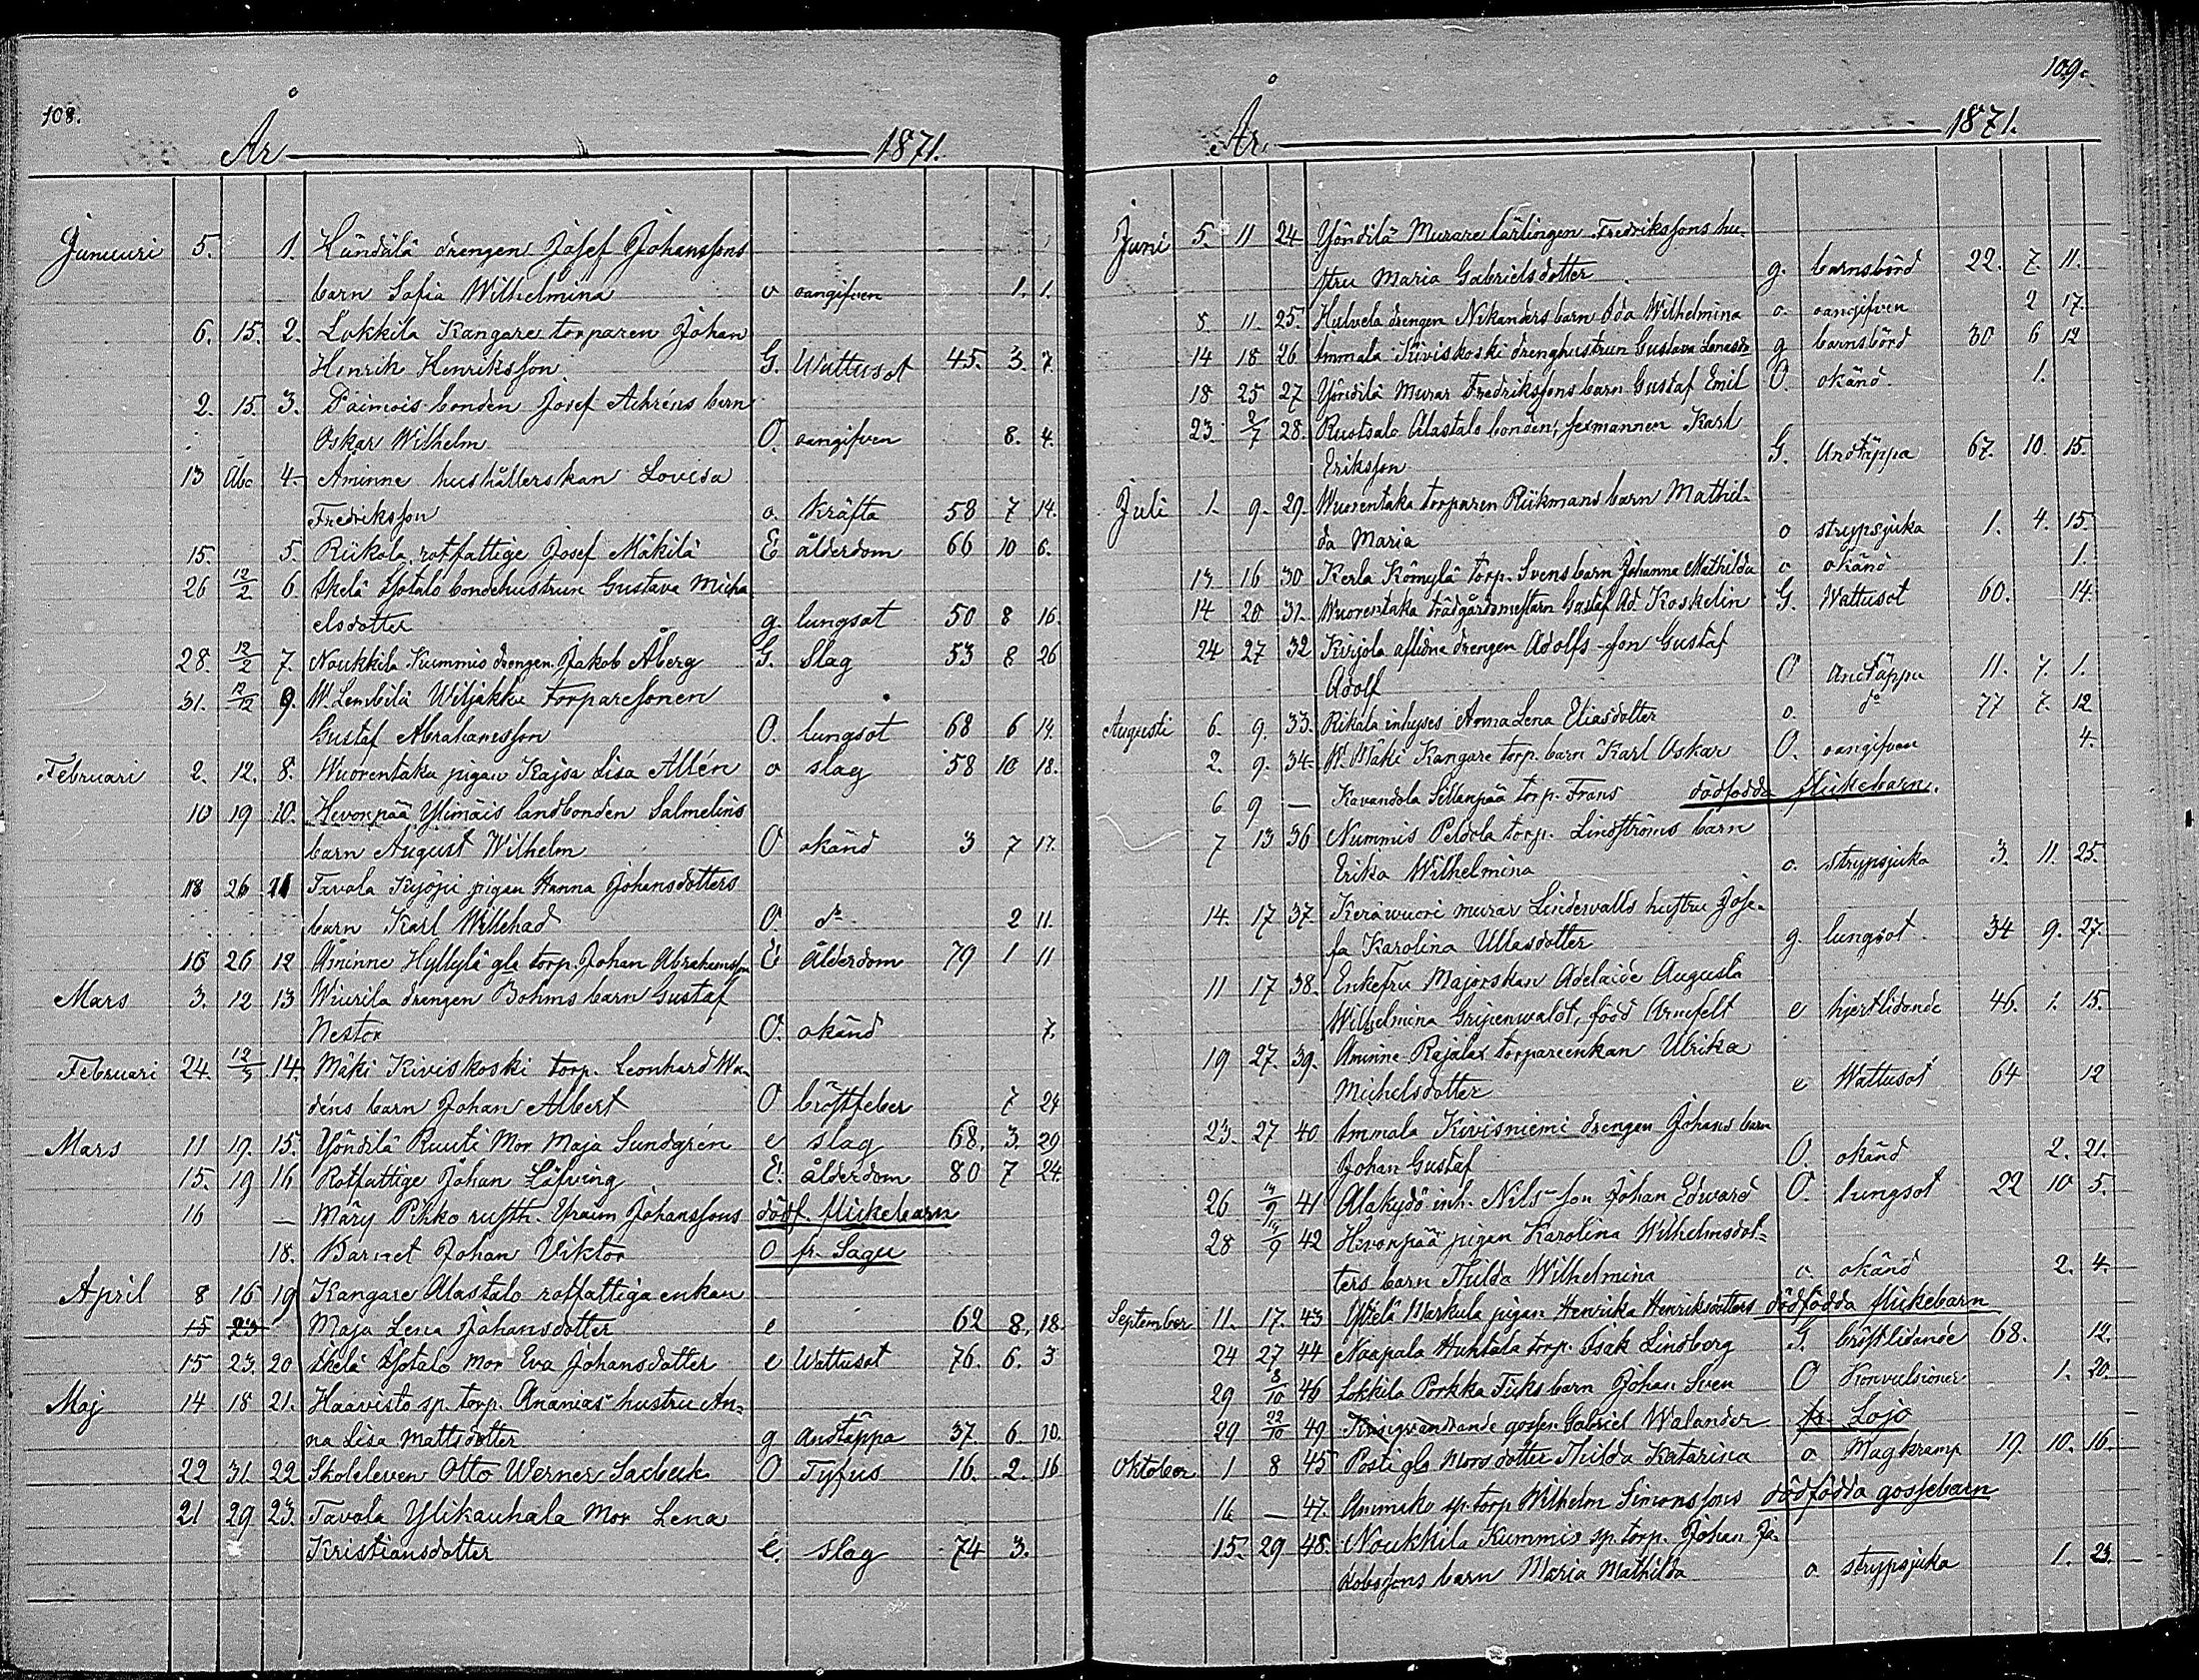 108.
År 1871.
Januari 5. 1. Kändälä drengen Josef Johanssons
barn Sofia Wilhelmina o oangifven 1. 1.
6. 15. 2. Lokkila Kangare torparen Johan
Henrik Henriksson G. Wattusot 45. 3. 7.
2. 15. 3. Paimois bonden Josef Ahréns barn
Oskar Wilhelm O. oangifven 8. 4.
13 Åbo 4. Åminne hushållerskan Lovisa
Fredriksson o. Kräfta 58 7 14.
15. 5. Riikola rotfattige Josef Mäkilä E ålderdom 66 10 6.
26 12/2 6. Isotalo bondehustrun Gustava Micha
elsdotter g. lungsot 50 8 16.
28. 12/2 7. Noukkila Kummis drengen Jakob Åberg G. Slag 53 8 26
31. 12/2 9. W. Lembilä Wiljakku torparesonen
Gustaf Abrahamsson O. lungsot 68 6 14.
Februari 2. 12. 8. Wuorentaka pigan Kajsa Lisa Allén o slag 58 10 18.
10 19 10. Hevonpää Ylimäis landbonden Salmelins
barn August Wilhelm O okänd 3 7 17.
18 26 11 Tavola Kyöpi pigan Hanna Johansdotters
barn Karl Willehad O. do 2 11.
16 26 12 Åminne Hyllylä gla torp. Johan Abrahamsson E Ålderdom 79 1 11
Mars 3. 12 13 Wiurila drengen Bohms barn Gustaf
Nestor O. okänd 7.
Februari 24. 12/3 14. Mäki Kiviskoski torp. Leonhard Wa-
déns barn Johan Albert O bröstfeber 7 24
Mars 11 19. 15. Yöndilä Ruuti Mor Maja Sundgrén e slag 68. 3. 29
15. 19 16 Rotfattige Johan Löfving E. ålderdom 80 7 24.
16 — Märy Pikko rusth. Efraim Johanssons dödf. flickebarn
18. Barnet Johan Viktor O fr. Sagu
April 8 16 19 Kangare Alastalo rotfattiga enkan
15 23 Maja Lena Johansdotter e 62 8. 18.
15 23. 20 Isotalo mor Eva Johansdotter e Wattusot 76. 6. 3
Maj 14 18 21. Haavisto sp. torp. Ananias hustru An-
na Lisa Mattsdotter g andtäppa 37. 6. 10.
22 31. 22 Skoleleven Otto Werner O Tyfus 16. 2. 16
21 29 23. Tavola Ylikauhala Mor Lena
Kristiansdotter e. Slag 74 3.
109.
År 1871.
Juni 5. 11 24 Yöndilä Murare lärlingen Fredrikssons hu-
stru Maria Gabrielsdotter g. barnsbörd 22. 7. 11.
8. 11. 25. drengen Nikanders barn Ida Wilhelmina o. oangifven 2 17.
14 18 26 Ammala Kiviskoski drenghustrun Gustava g barnsbörd 30 6 12
18 25 27 Yöndilä Murar Fredrikssons barn Gustaf Emil O. okänd. 1.
23. 2/7 28. Ruotsalo Alastalo bonden, sexmannen Karl
Eriksson G. Andtäppa 67. 10. 15.
Juli 1. 9. 29. Wuorentaka torparen Riikmans barn Mathil-
da Maria o strypsjuka 1. 4. 15.
13 16 30 Kerla Kömylä torp. Svens barn Johanna Mathilda o okänd 1.
14 20 31. Wuorentaka trädgårdsmestarn Gustaf Ad. Koskelin G. Wattusot 60. 14.
24 27 32 Kirjola aflidne drengen Adolfs son Gustaf
Adolf O Andtäppa 11. 7. 1.
Augusti 6. 9. 33. Rikala inhyses Anna Lena Eliasdotter o. do 77 7. 12
2. 9. 34. W. Mäki Kangare torp. barn Karl Oskar O. oangifven 4.
6 9 — Kavandola Sillanpää torp. Frans dödfödda flickebarn.
7 13 36 Nummis Peldola torp. Lindströms barn
Erika Wilhelmina o. strypsjuka 3. 11. 25.
14. 17 37. Keräwuori murar Lindervalls hustru Jose-
fa Karolina Ullasdotter g. lungsot 34 9. 27.
11 17 38. Enkefru Majorskan Adelaide Augusta
Wilhelmina Gripenwaldt, född Armfelt e hjertlidande 46. 1. 15.
19 27. 39. Åminne Rajala torpareenkan Ulrika
Michelsdotter e Wattusot 64 12
23. 27 40 Ammala Kivisniemi drengen Johans barn
Johan Gustaf O. okänd 2. 21.
26 14/9 41 Alakydö inh. Nils son Johan Edward O. lungsot 22 10 5.
28 14/9 42 Hevonpää pigan Karolina Wilhelmsdot-
ters barn Thilda Wilhelmina o. okänd 2. 4.
September 11. 17. 43 Markula pigan Henrika Henriksdotters dödfödda flickebarn
24 27 44 Naapala Huhtala torp. Isak Lindborg G. bröstlidande 68. 12.
29 8/10 46 Lokkila Porkka Fiiks barn Johan Sven O Konvulsioner 1. 20.
29 22/10 49 Kringvandrande gossen Gabriel Walander fr. Lojo
Oktober 1 8 45 Posti gla Mors dotter Thilda Katarina o Magkramp 19. 10. 16.
16 — 47. sp. torp. Wilhelm Simonssons dödfödda gossebarn
15. 29 48. Noukkila Kummis sp. torp. Johan Ja-
kobssons barn Maria Mathilda o strypsjuka 1. 23.